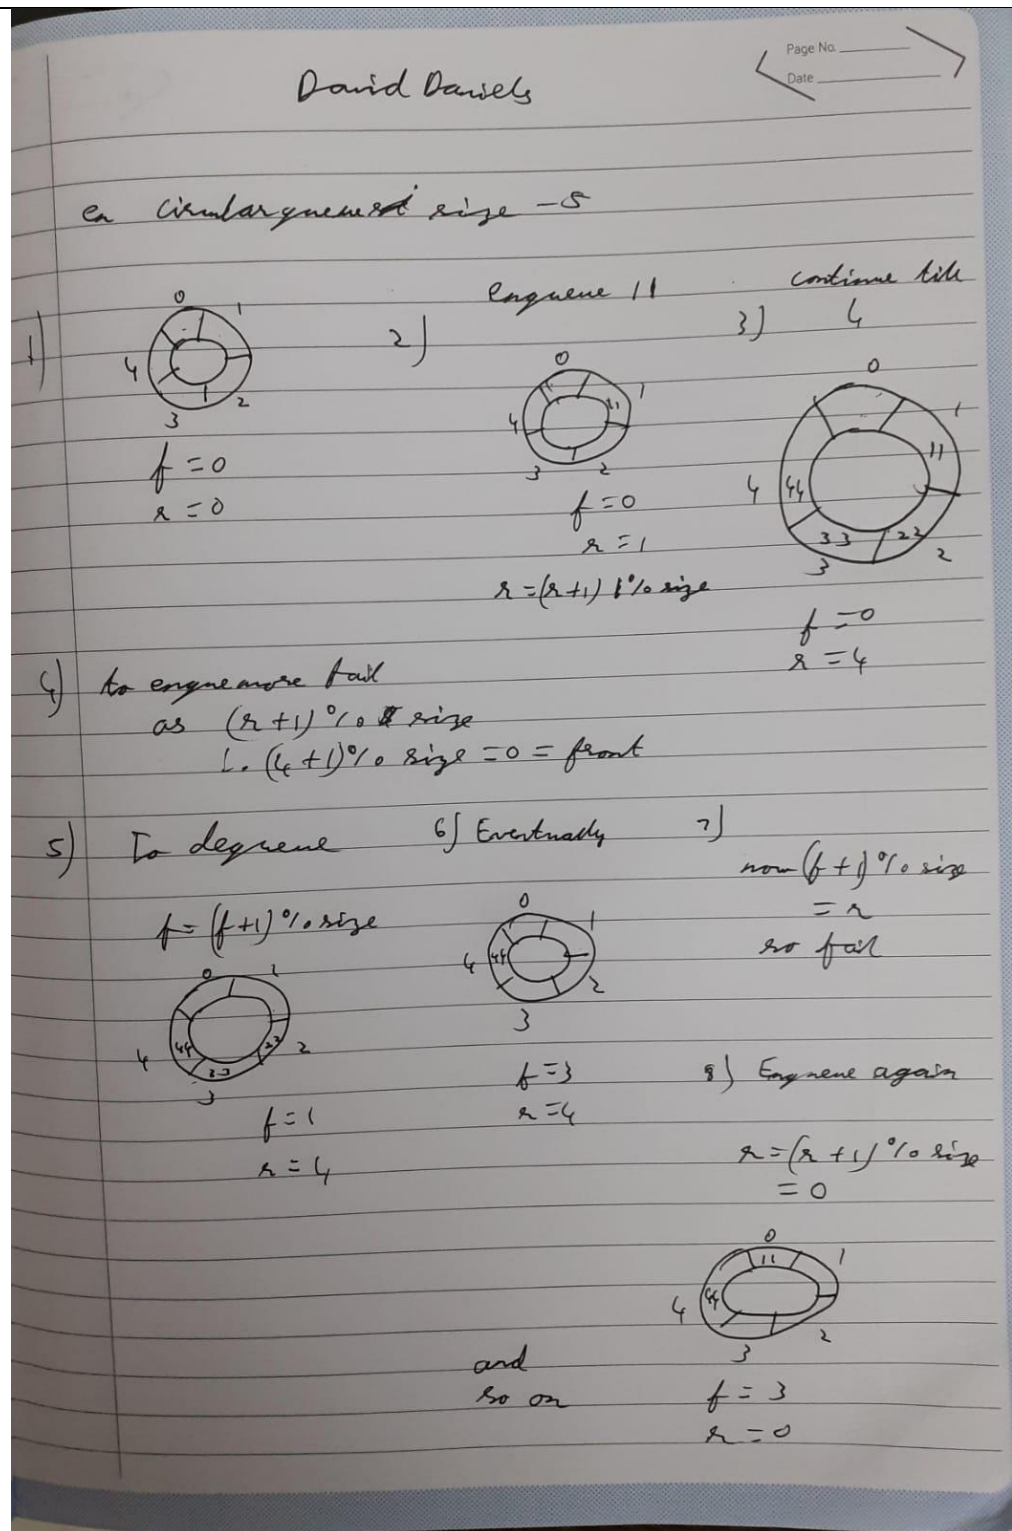 Page No.
Date
David Daniels
en circularqueue size - 5
1)
0 1 2 3 4
f = 0
r = 0
2) enqueue 11
0 1 2 3 4
11
f = 0
r = 1
r = (r+1) % size
3) continue till
4
0 1 2 3 4
11 22 33 44
f = 0
r = 4
4) to enque more fail
as (r+1) % size
i. (4+1)% size = 0 = front
5) To dequeue
f = (f+1) % size
0 1 2 3 4
22 33 44
f = 1
r = 4
6) Eventually
0 1 2 3 4
44
f = 3
r = 4
7)
now (f+1) % size
= r
so fail
8) Enqueue again
r = (r+1) % size
= 0
0 1 2 3 4
11 44
f = 3
r = 0
and
so on